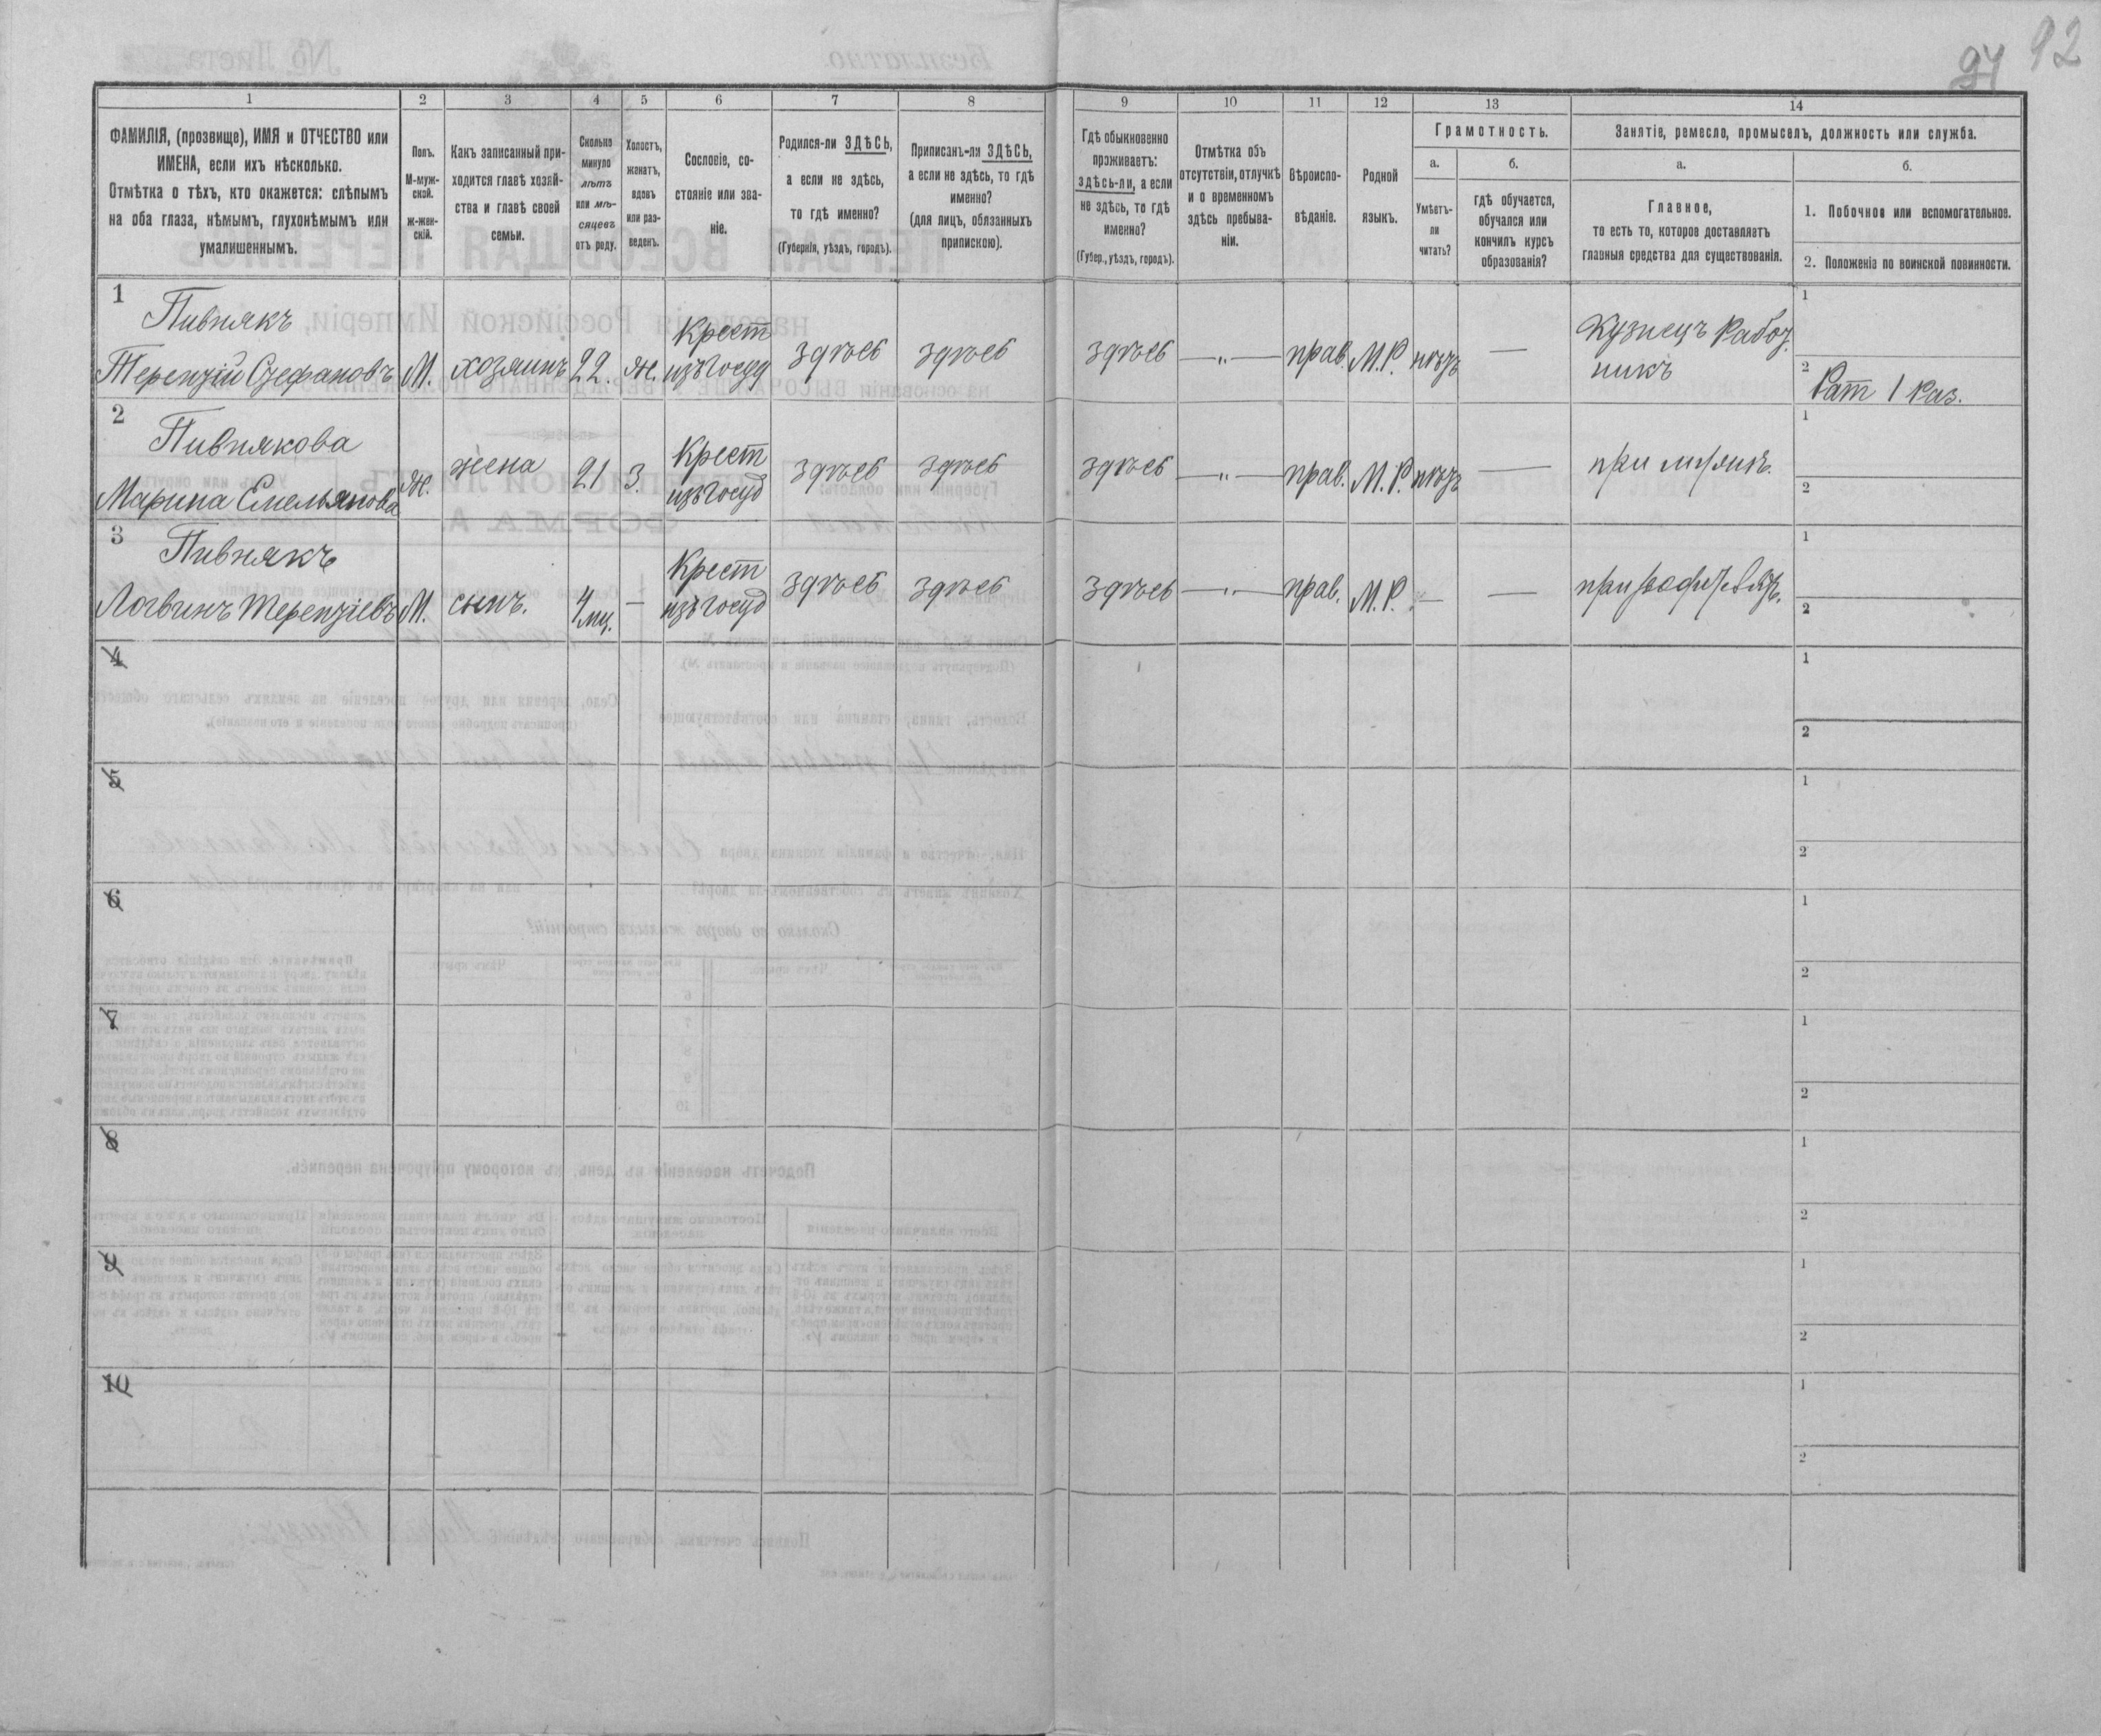 92
94
1
2
3
4
5
6
7
8
9
10
11
12
13
14
ФАМИЛІЯ, (прозвище), ИМЯ и ОТЧЕСТВО или
ИМЕНА, если ихъ нѣсколько.
Отмѣтка о тѣхъ, кто окажется: слѣпымъ
на оба глаза, нѣмымъ, глухонѣмымъ или
умалишеннымъ.
Полъ.
М-муж-
ской.
ж-жен-
скій.
Какъ записанный при-
ходится главѣ хозяй-
ства и главѣ своей
семьи.
Сколько
минуло
лѣтъ
или мѣ-
сяцевъ
отъ роду.
Холостъ,
женатъ,
вдовъ
или раз-
веденъ.
Сословіе, со-
стояніе или зва-
ніе.
Родился-ли ЗДѢСЬ,
а если не здѣсь,
то гдѣ именно?
(Губернія, уѣздъ, городъ).
Приписанъ-ли ЗДѢСЬ,
а если не здѣсь, то гдѣ
именно?
(для лицъ, обязанныхъ
припискою).
Гдѣ обыкновенно
проживаетъ:
здѣсь-ли, а если
не здѣсь, то гдѣ
именно?
(Губер., уѣздъ, городъ).
Отмѣтка объ
отсутствіи, отлучкѣ
и о временномъ
здѣсь пребыва-
ніи.
Вѣроиспо-
вѣданіе.
Родной
языкъ.
Грамотность.
а.
Умѣетъ-
ли
читать?
б.
гдѣ обучается,
обучался или
кончилъ курсъ
образованія?
Занятіе, ремесло, промыселъ, должность или служба.
а.
Главное,
то есть то, которое доставляетъ
главныя средства для существованія.
б.
1. Побочное или вспомогательное.
2. Положеніе по воинской повинности.
1
Пивнякъ
Терентій Стефановъ
М.
хозяинъ
22.
ж.
Крест
изъ госуд
здѣсь
здѣсь
здѣсь
—„—
прав.
М.Р.
нѣтъ
—
Кузнецъ Работ.
никъ
1
2
Рат 1 раз.
2
Пивнякова
Марина Емельянова
Ж.
жена
21
З.
Крест
изъ госуд
здѣсь
здѣсь
здѣсь
—„—
прав.
М.Р.
нѣтъ
—
при мужѣ.
1
2
3
Пивнякъ
Логвинъ Терентіевъ
М.
сынъ.
4
мц.
—
Крест
изъ госуд
здѣсь
здѣсь
здѣсь
—„—
прав.
М.Р.
—
—
1
2
4
1
2
5
1
2
6
1
2
7
1
2
8
1
2
9
1
2
10
1
2